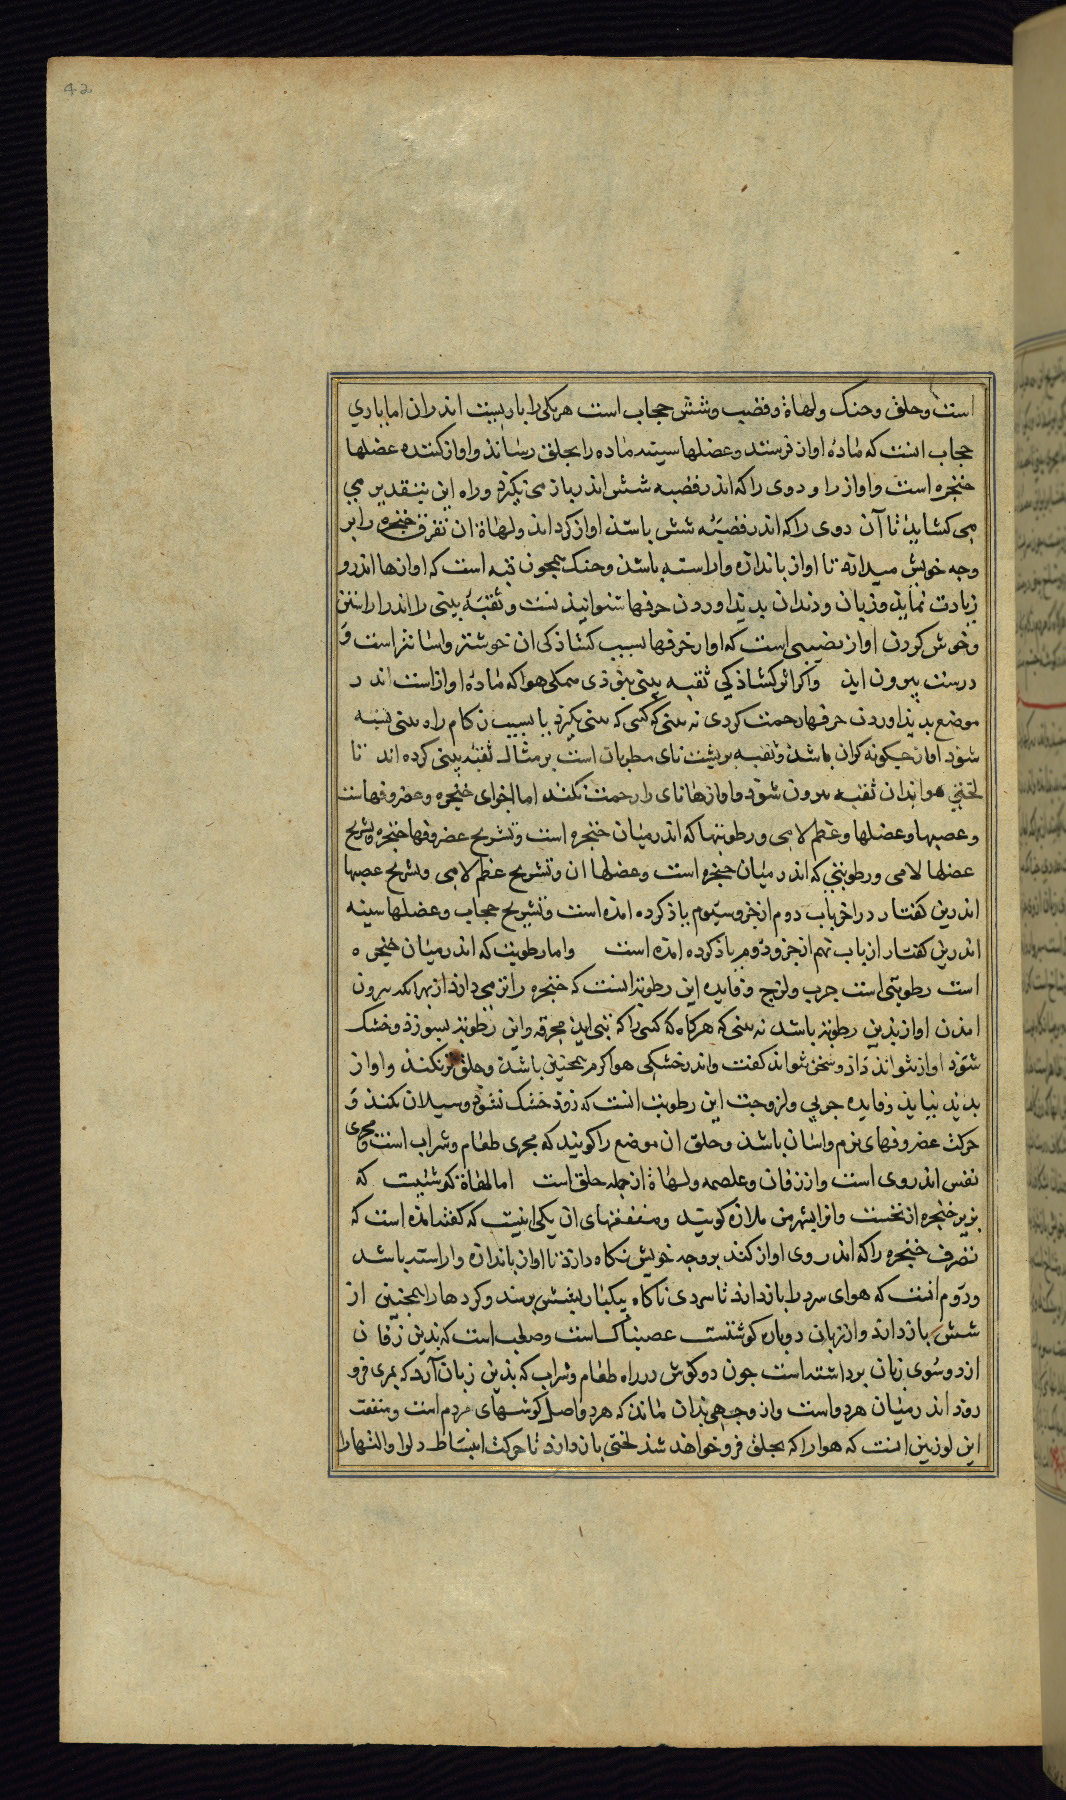 42
است وحلق وحنک ولهاة وقصب وشش حجاب است هریکی را یاریست اندران اما یاری
حجاب انست که ماده اواز فرستد وعضلها سینه ماده را بحلق رساند واواز کننده عضلها
حنجره است واواز را و دوی را که اندر قصبه شش اندر باز می گیرد وراه این بتقدیر می
می کشاید تا آن دوی را که اندر قصبه شش باشد اواز کرداند ولهاة ان تصرف حنجره را بر
وجه خویش میدارد تا اواز باندازه واراسته باشد وحنک همچون قبه است که اوازها اندرو
زیادت نماید وزبان ودندان بدید اوردن حرفها بتوانند بست وثقبه بینی را اندر اراستن
وخوش کردن اواز نصیبی است که اواز حرفها بسبب کشادکی ان خوشتر واسانتر است و
درست بیرون اید واکر اثر کشادکی ثقبه بینی بنوذی همکی هوا که ماده اواز است اندر
موضع بدید اوردن حرفها زحمت کردی نه بینی که کسی که بینی بکیرد یا بسبب زکام راه بینی بسته
شود اواز چکونه کران باشد وثقبه بر پشت نای مطربان است بر مثال ثقبه بینی کرده اند تا
لختی هوا بدان ثقبه بیرون شود واوازها نای را زحمت نکند اما اجزای حنجره وغضروفهاست
وعصبها وعضلها وعظم لامی ورطوبتها که اندر میان حنجره است وتشریح غضروفها حنجره وتشریح
عضلها لامی ورطوبتی که اندر میان حنجره است وعضلها ان وتشریح عظم لامی وتشریح عصبها
اندرین کفتار در اخر باب دوم از جزو سیوم یاذ کرده امده است وتشریح حجاب وعضلها سینه
اندرین کفتار از باب نهم از جزو دوم یاذ کرده امده است واما رطوبت که اندر میان حنجره
است رطوبتی است چرب ولزج وفایده این رطوبت انست که حنجره را تر می دارذ از بهر انکه بیرون
امدن اواز بدین رطوبت باشد نه بینی که هر کاه که کسی را که تبی اید محرقه واین رطوبت بسوزذ وخشک
شود اواز نتواند داد وسخن نتواند کفت واندر خشکی هوا کرم همچنین باشد وحلق تر نکند واواز
بدید نیاید وفایده چربی ولزوجت این رطوبت انست که زود خشک نشود وسیلان نکند و
حرکت غضروفهای نرم واسان باشد وحلق ان موضع را کویند که مجری طعام وشراب است ومجری
نفس اندروی است وازرفان وغلصمه ولهاة از جمله حلق است اما لهاة کوشتیست که
بزیر حنجره از نخست وانرا بشهر من ملازه کویند ومنفعتهای ان یکی اینست که کفته امده است که
تصرف حنجره را که اندروی اواز کند بر وجه خویش نکاه دارد تا اواز باندازه واراسته باشد
ودوم انست که هوای سرد را بازدارد تا سردی ناکاه بیکبار بشش نرسد وکردها را همچنین از
شش بازدارد وازرفان دوپاره کوشتست عصبناک است وصلب است که بدین زفان
از دو سوی زبان برداشته است چون دو کوش در راه طعام وشراب که بدین زبان آرد که بمری فرو
رود اندر میان هردو است واز وجهی بدان ماند که هردو اصل کوشهای مردم است ومنفعت
این لوزتین انست که هوا را که بحلق فرو خواهد شد لختی بازدارد تا حرکت انبساط دل اوا والتها را